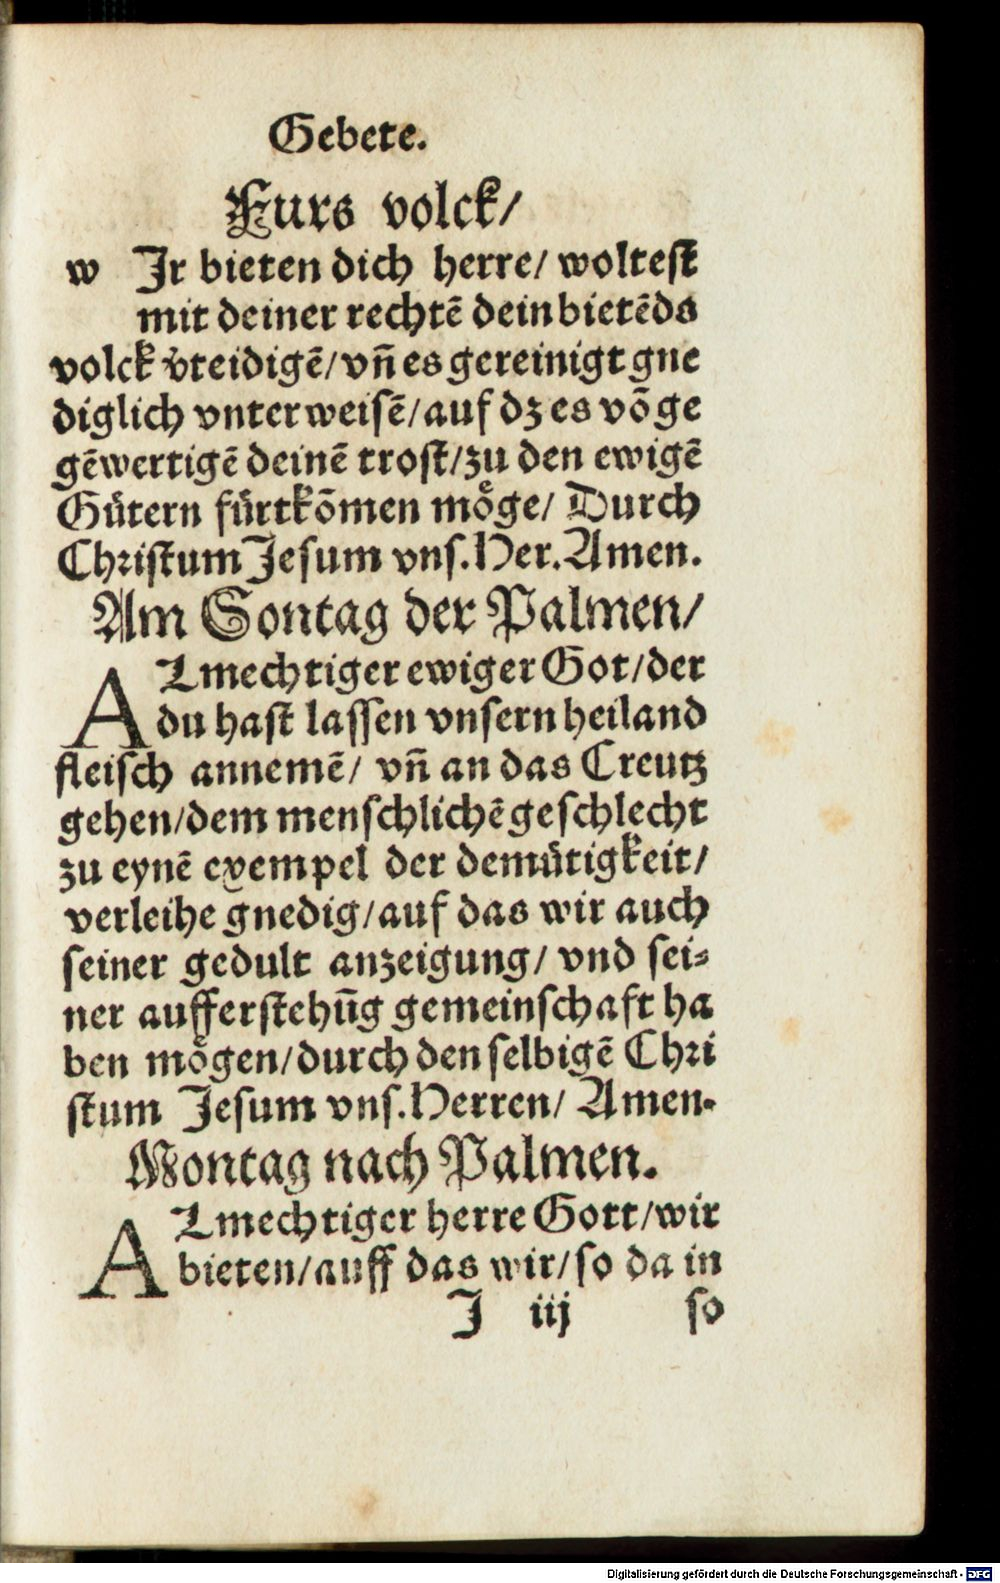 Gebete.
Furs volck/
w Jr bieten dich herre/ woltest
mit deiner rechtē dein bietēds
volck v̈teidigē/ vn̄ es gereinigt gne
diglich vnterweisē/ auf dz es vō ge
gēwertigē deinē trost/ zu den ewigē
Gütern fürtkōmen möge/ Durch
Christum Jesum vns. Her. Amen.
Am Sontag der Palmen/
ALmechtiger ewiger Got/ der
du hast lassen vnsern heiland
fleisch annemē/ vn̄ an das Creutz
gehen/ dem menschlichē geschlecht
zu eynē exempel der demütigkeit/
verleihe gnedig/ auf das wir auch
seiner gedult anzeigung/ vnd sei⸗
ner aufferstehūg gemeinschaft ha
ben mögen/ durch den selbigē Chri
stum Jesum vns. Herren/ Amen.
Montag nach Palmen.
ALmechtiger herre Gott/ wir
bieten/ auff das wir/ so da in
J iij so
Digitalisierung gefördert durch die Deutsche Forschungsgemeinschaft - DFG